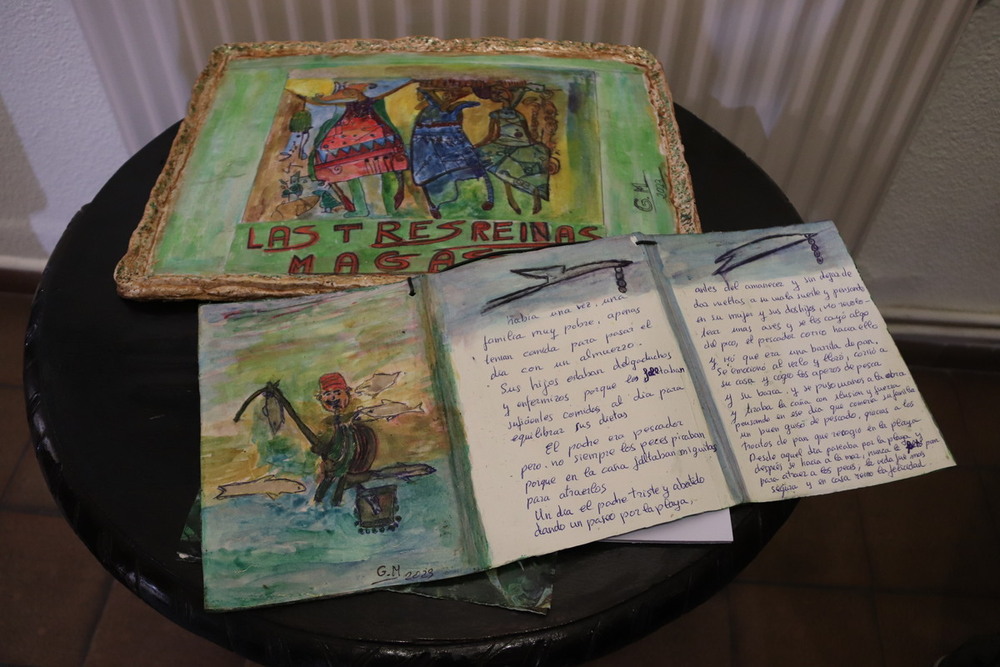 LAS TRES REINAS
MAGAS
G.M
G.M 2023
Había una vez, una
familia muy pobre, apenas
tenian comida para pasar el
dia con un almuerzo.
Sus hijos estaban delgoduchos
y enfermizos porque les faltaban
suficientes comidas al dia para
equilibrar sus dietas
El padre era pescador
pero no siempre los peces picaban
porque en la caña faltaban miguitas
para atraerlos
Un dia el padre triste y abatido
dando un paseo por la playa,
antes del amanecer y sin dejar de
dar vueltas a su mala suerte y pensando
en su mujer y sus dos hijos, vio
unas aves y se les cayó algo
del pico, el pescador corrio hacia ello
y vió que era una barrita de pan,
Se emocionó al verlo y lloró, corrió a
su casa y cogió los aperos de pesca
y su barca, y se puso manos a la obra
y tiraba la caña con ilusion y fuerza
pensando en ese dia que comeria su familia
un buen guiso de pescado, gracias a los
trocitos de pan que recogió en la playa
Desde aquel dia paseaba por la playa y
después se hacia a la mar, nunca le faltó pan
para atraer a los peces, la vida fué mas
segura y en casa reinó la felicidad